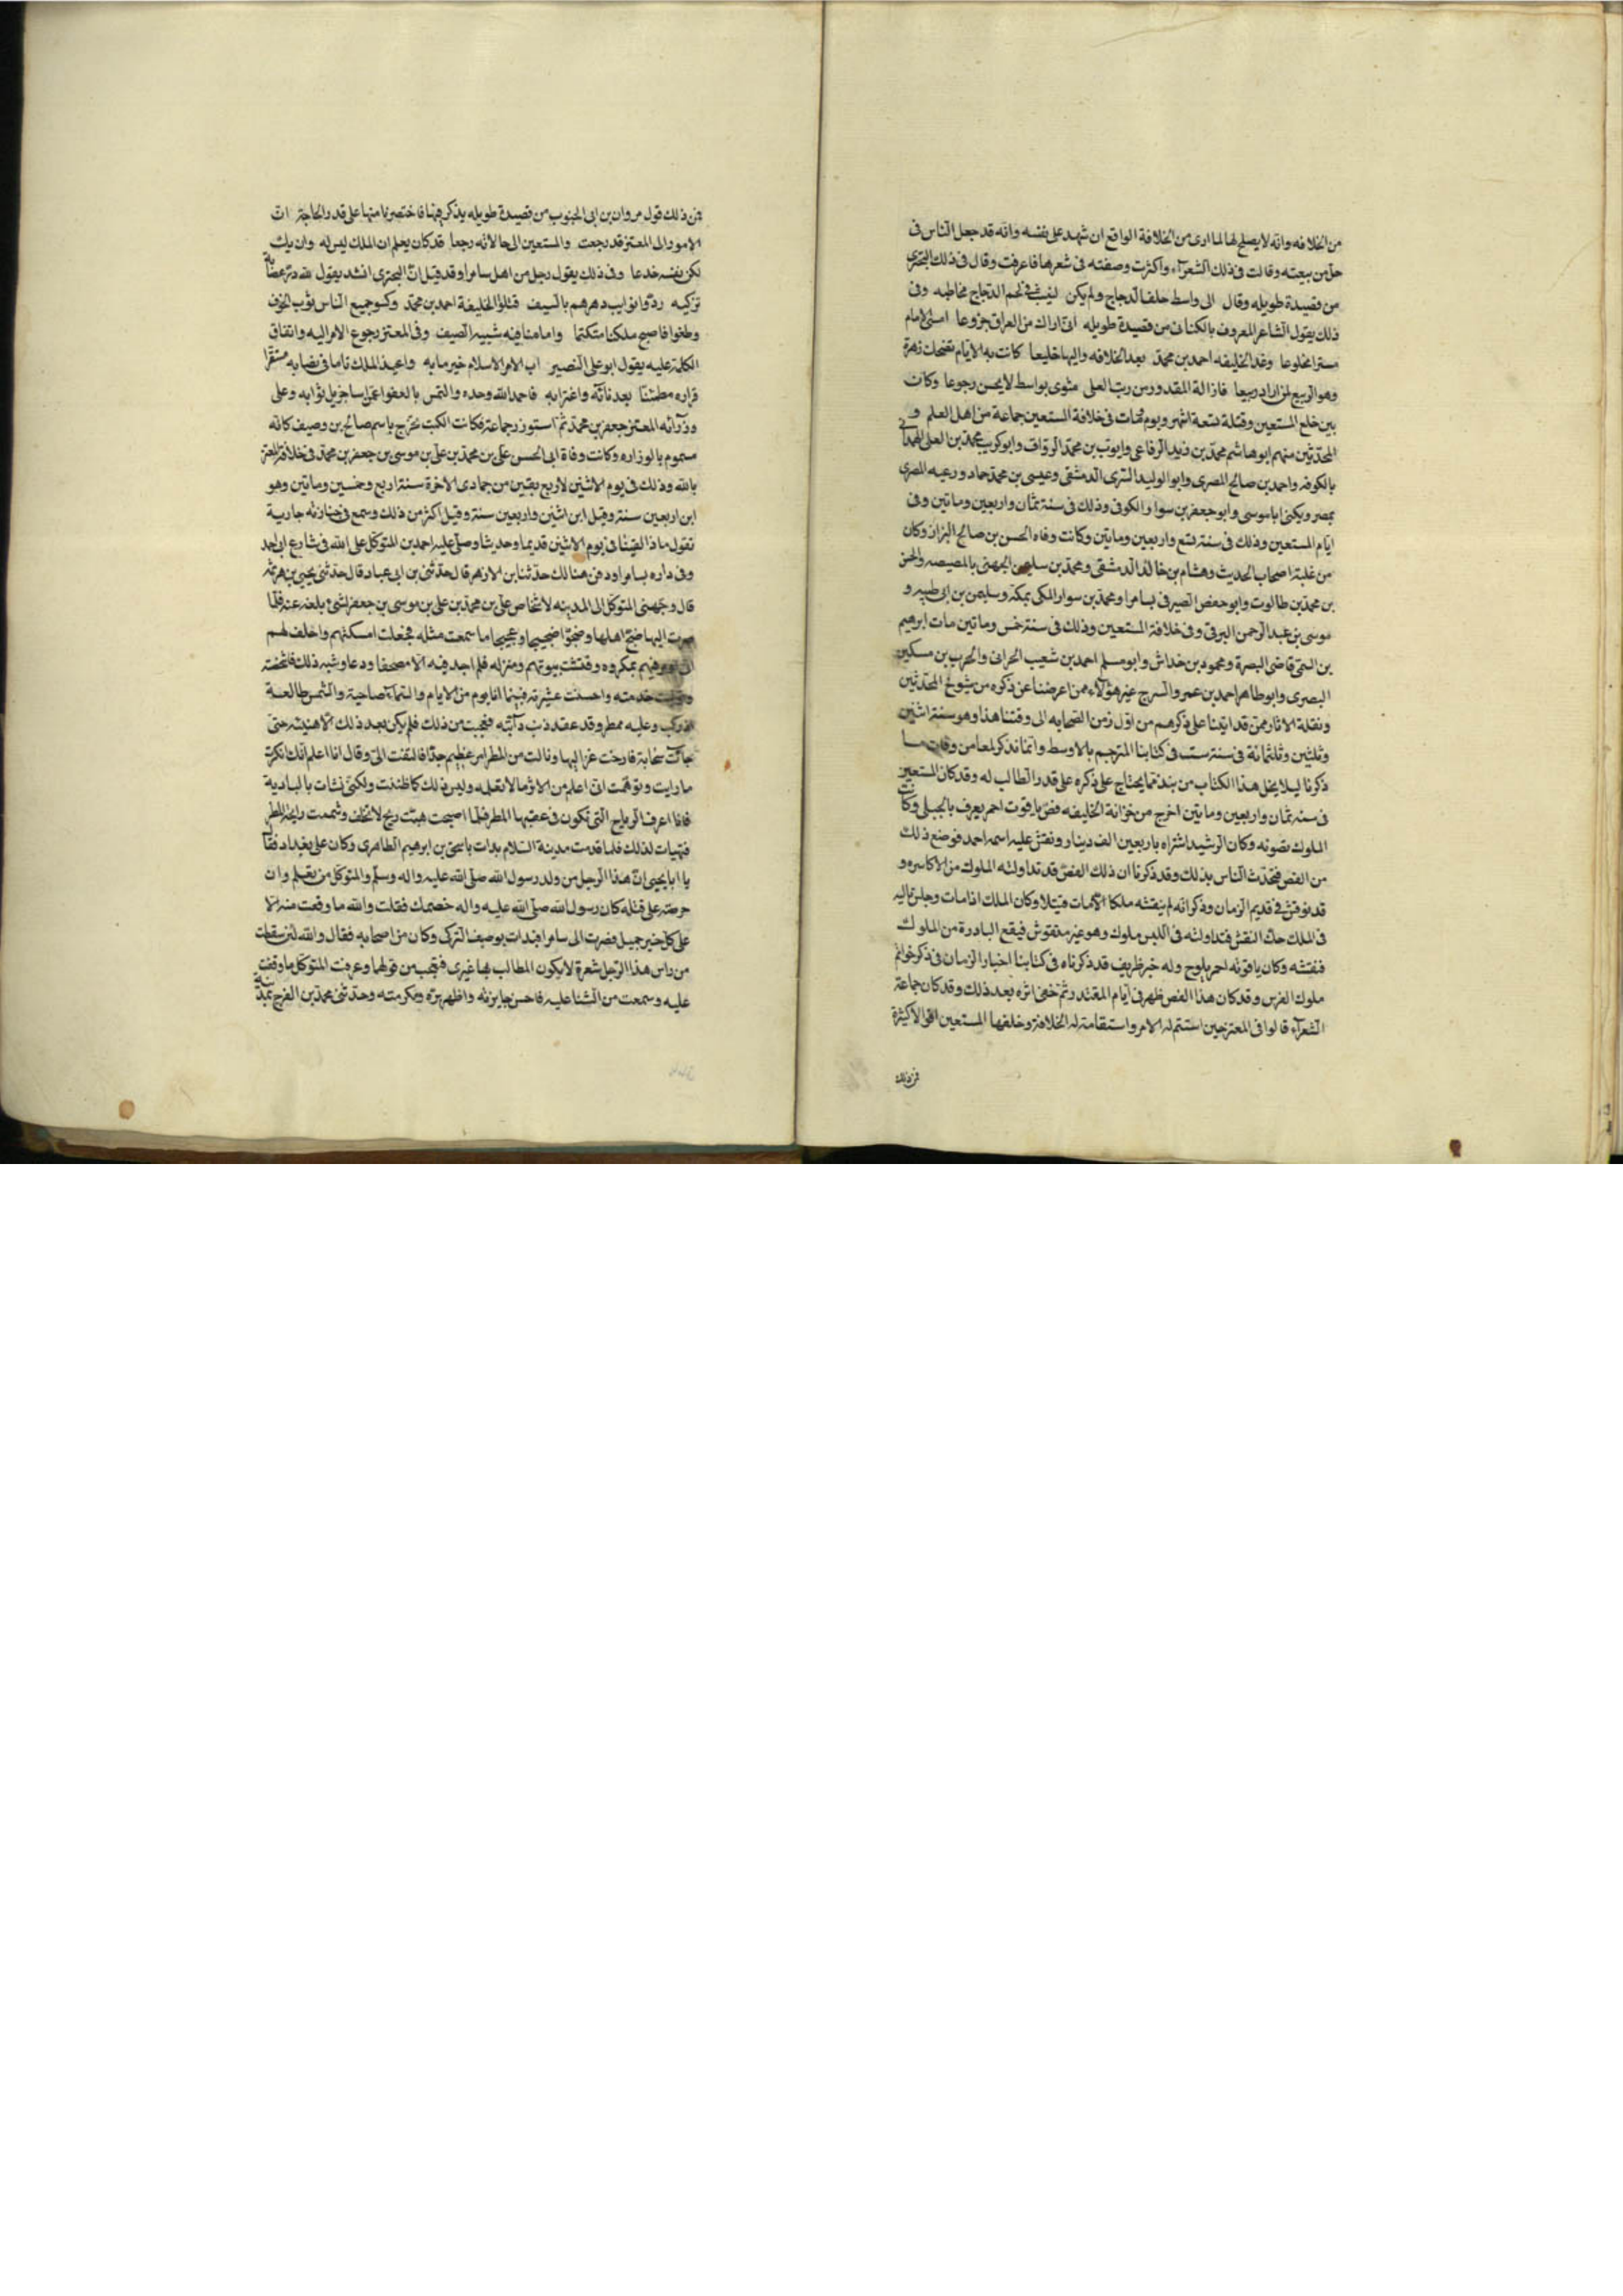 من الخلافه وانه لا يصلح لها لما ارى من الخلافة الواقع ان شهد على نفسه وانه قد جعل الناس فى
حل من بيعته وقالت فى ذلك الشعرآء واكثرت ووصفته فى شعرها فاعرفت وقال فى ذلك البحترى
من قصيدة طويله وقال الى واسط خلف الدجاج ولم يكن لينبت فى لحم الدجاج مخاطبه وفى
ذلك يقول الشاعر المعروف بالكنانى من قصيدة طويله انى اراك من العراق جزوعا امسى الامام
مسترا مخلوعا وغدا الخليفه احمد بن محمد بعد الخلافه والبها خليعا كانت به الايام تضحك زهرة
وهو الربيع لمن اراد ربيعا فازاله المقدور من رتب العلى مثوى بواسط لا يحس رجوعا وكان
بين خلع المستعين وقتله تسعة اشهر ويوم ومات فى خلافة المستعين جماعة من اهل العلم و
المحدثين منهم ابو هاشم محمد بن زيد الرفاعى وايوب بن محمد الوراق وابو كريب محمد بن العلى الهمدانى
بالكوفه واحمد بن صالح المصرى وابو الوليد السرى الدمشقى وعيسى بن محمد حماد ورعيه المصرى
بمصر ويكنى ابا موسى وابو جعفر بن سوار الكوفى وذلك فى سنة ثمان واربعين وماتين وفى
ايام المستعين وذلك فى سنة تسع واربعين وماتين وكانت وفاه الحسن بن صالح البزار وكان
من علية اصحاب الحديث وهشام بن خالد الدمشقى ومحمد بن سليمن الجهنى بالمصيصه والحسن
بن محمد بن طالوت وابو حفص الصيرفى بسامرا ومحمد بن سوار المكى بمكة وسليمن بن ابى طيبه و
موسى بن عبد الرحمن البرقى وفى خلافة المستعين وذلك فى سنة خمس وماتين مات ابرهيم
بن التيمى قاضى البصرة ومحمود بن خداش وابو مسلم احمد بن شعيب الحرانى والحرب بن مسكين
البصرى وابو طاهر احمد بن عمرو السرج غير هؤلآء ممن اعرضنا عن ذكره من شيوخ المحدثين
ونقلة الاثار ممن قد اتينا على ذكرهم من اول زمن الصحابه الى وقتنا هذا وهو سنة اثنين
وثلثين وثلثمائة فى سنة سنة فى كتابنا المترجم بالاوسط وانما نذكر لمعا من وفات ما
ذكرنا ليلا يخل هذا الكتاب من نبذ مما يحتاج على ذكره على قدر الطالب له وقد كان المستعين
فى سنه ثمان واربعين وماتين اخرج من خزانة الخليفه فص ياقوت احمر يعرف بالجبلى وكانت
الملوك تصونه وكان الرشيد اشتراه باربعين الف دينار ونقش عليه اسمه احمد فوضع ذلك
من الفص فتحدث الناس بذلك وقد ذكرنا ان ذلك الفص قد تداولته الملوك من الاكاسره و
قد نوقش فى قديم الزمان وذكر انه لم ينقشه ملكا الا مات قتيلا وكان الملك اذا مات وجلس تاليه
فى الملك حك النقش فتداولته فى اللبس ملوك وهو غير منقوش فيقع البادرة من الملوك
فنقشه وكان ياقوته احمر يلوح وله خبر ظريف قد ذكرناه فى كتابنا اخبار الزمان فى ذكر خواتم
ملوك الفرس وقد كان هذا الفص ظهر فى ايام المقتدر وثم خفى اثره بعد ذلك وقد كان جماعة
الشعرآء قالوا فى المعتز حين استتم له الامر واستقامة له الخلافة وخلفها المستعين اقوالا كثيرة
فمن ذلك
فمن ذلك قول مروان بن ابى الجنوب من قصيدة طويله يذكر فيها فاختصرنا منها على قدر الحاجة ان
الامور الى المعتز قد رجعت والمستعين الى حالاته رجعا قد كان يعلم ان الملك ليس له وان يك
لكن نفسه خدعا وفى ذلك يقول رجل من اهل سامرا وقد قيل ان البحترى انشد يقول لله در عصابة
تركيه ردوا نوايب دهرهم بالسيف قتلوا الخليفة احمد بن محمد وكسو جميع الناس ثوب الخوف
وطغوا فاصبح ملكنا متكتما وامامنا فيه شبيه الضيف وفى المعتز رجوع الامر اليه واتفاق
الكلمة عليه يقول ابو على النصير اب الامر الاسلام خير مابه واعيد الملك ناما فى نصابه مستقرا
قراره مطمئنا بعد نائه واغترابه فاحمد الله وحده والتمس بالعفوا عمن اسا جزيل ثوابه وعلى
وزرآئه المعتز جعفر بن محمد ثم استوزر جماعة فكانت الكتب تخرج باسم صالح بن وصيف كانه
مسموم بالوزاره وكانت وفاة ابى الحسن على بن محمد بن على بن موسى بن جعفر بن محمد فى خلافة المعتز
بالله وذلك فى يوم الاثنين لاربع بقين من جمادى الاخرة سنة اربع وخمسين وماتين وهو
ابن اربعين سنة وقيل ابن اثنين واربعين سنة وقيل اكثر من ذلك وسمع فى جنازته جارية
تقول ماذا لقينا فى يوم الاثنين قديما وحديثا وصلى عليه احمد بن المتوكل على الله فى شارع ابى احمد
وفى داره بسامرا ودفن هنالك حدثنا بن الازهر قال حدثنى بن ابى عباد قال حدثنى يحيى بن هرثمه
قال وجهنى المتوكل الى المدينه لاشخاص على بن محمد بن على بن موسى بن جعفر لشئ بلغه عنه فلما
صرت اليها ضج اهلها وضجوا ضجيجا وعجيجا ما سمعت مثله فجعلت اسكنهم واحلف لهم
انى لم اومر فيهم بمكروه وفتشت بيوتهم ومنزله فلم اجد فيه الا مصحفا ودعا وشبه ذلك فاشخصته
وتوليت خدمته واحسنت عشرته فبينما انا يوم من الايام والسمآء صاحية والشمس طالعة
اذ ركب وعليه ممطر وقد عقد ذنب دآبته فعجبت من ذلك فلم يكن بعد ذلك الا هنيئه حتى
جآت سحابة فارخت عزاليها ونالت من المطر امر عظيم جدا فالتفت الى وقال انا اعلم انك انكرت
ما رايت وتوهمت انى اعلم من الامر ما لا تعلمه وليس ذلك كما ظننت ولكنى نشات بالبادية
فانا اعرف الرياح التى تكون فى عقبها المطر فلما اصبحت هبت ريح لا تخلف وشممت رايحة المطر
فتهيات لذلك فلما قدمت مدينة السلام بدات باسحق بن ابرهيم الطاهرى وكان على بغداد فقال
يا ابا يحيى ان هذا الرجل من ولد رسول الله صلى الله عليه واله وسلم والمتوكل من تعلم وان
حرصته على قتله كان رسول الله صلى الله عليه واله خصمك فقلت والله ما وقعت منه الا
على كل خير جميل فصرت الى سامرا فبدات بوصيف التركى وكان من اصحابه فقال والله لئن سقطت
من راس هذا الرجل شعرة لا يكون المطالب بها غيرى فتعجبت من قولهما وعرفت المتوكل ما وقفت
عليه وسمعت من الثنا عليه فاحسن جايزته واظهر بره وتكرمته وحدثنى محمد بن الفرج